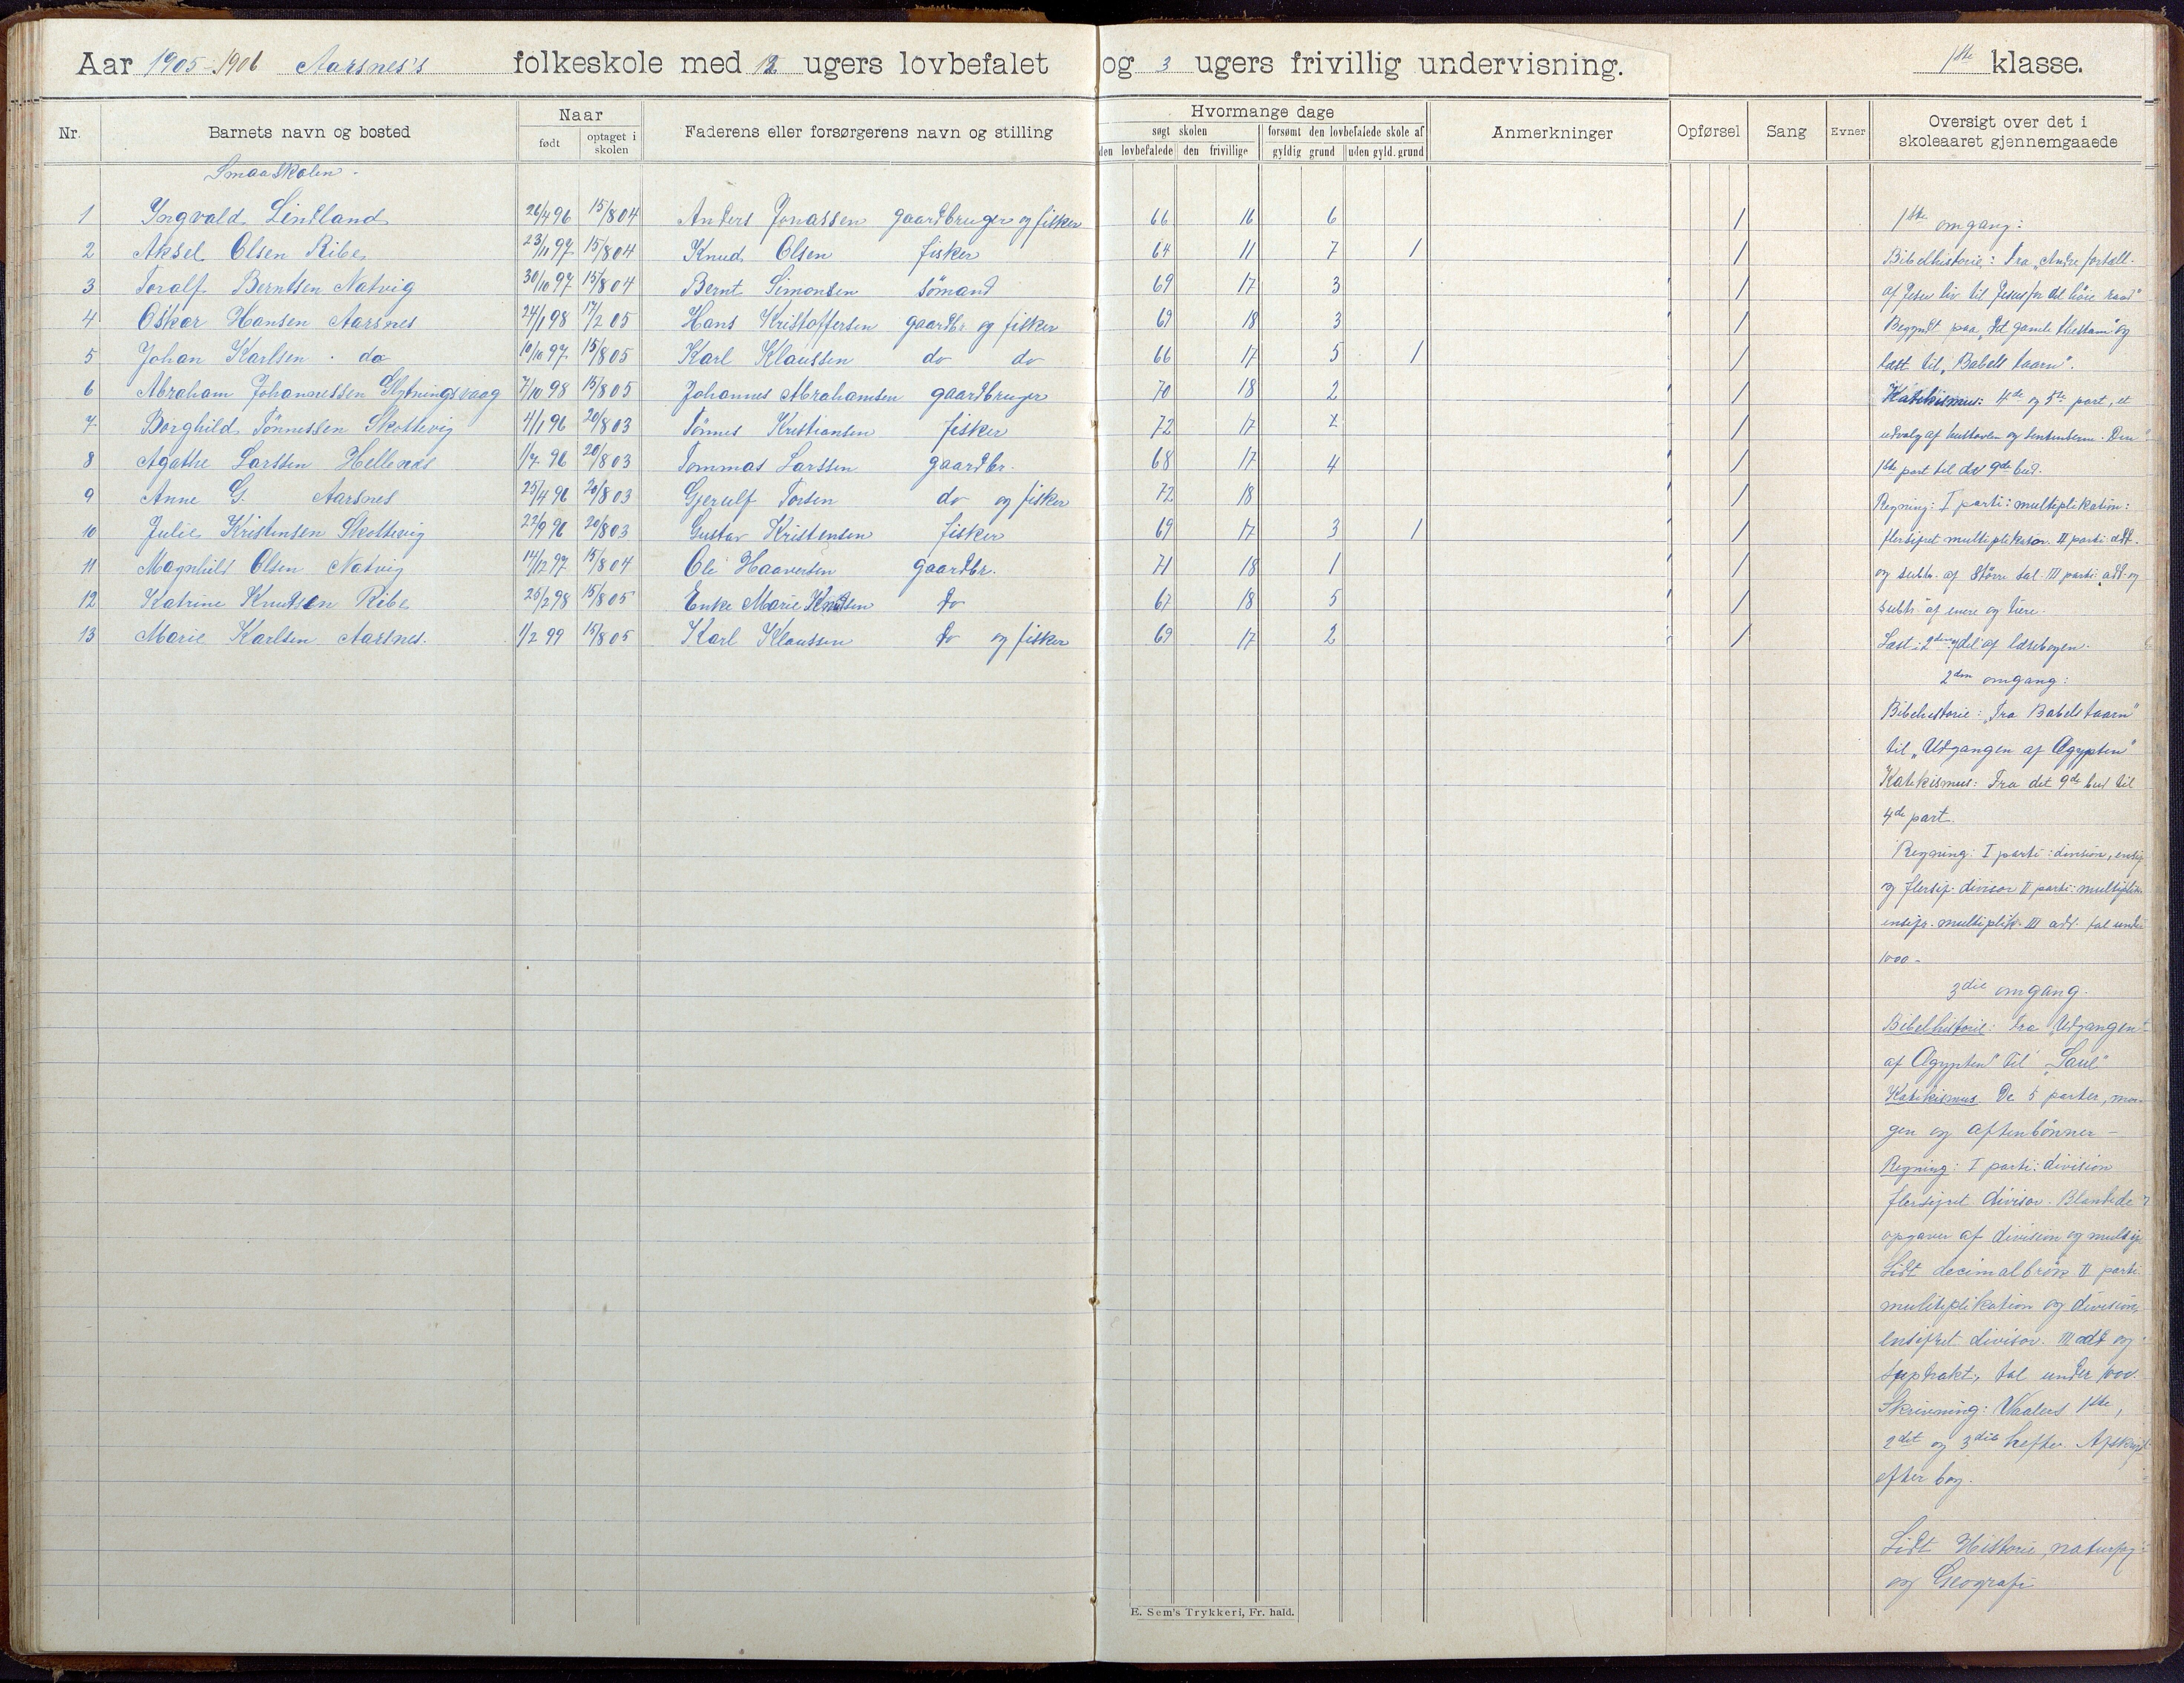 Aar 1905-1906 Aarsnes's folkeskole med 12 ugers lovbefalet og 3 ugers frivillig undervisning. 1ste klasse.
Nr. Barnets navn og bosted Naar født optaget i skolen Faderens eller forsørgerens navn og stilling Hvormange dage søgt skolen den lovbefalede den frivillige forsømt den lovbefalede skole af gyldig grund uden gyld. grund Anmerkninger Opførsel Sang Evner Oversigt over det i skoleaaret gjennemgaaede
Smaaskolen.
1 Ingvald Lindland 26/4 96 15/8 04 Anders Jonassen gaardbruger og fisker 66 16 6 /
2 Aksel Olsen Ribe 23/11 97 15/8 04 Knud Olsen fisker 64 11 7 1 /
3 Toralf Berntsen Natvig 30/10 97 15/8 04 Bernt Simonsen sømand 69 17 3 /
4 Oskar Hansen Aarsnes 24/1 98 17/2 05 Hans Kristoffersen gaardbr og fisker 69 18 3 /
5 Johan Karlsen do 10/10 97 15/8 05 Karl Klaussen do do 66 17 5 1 /
6 Abraham Johannessen 7/10 98 15/8 05 Johannes Abrahamsen gaardbruger 70 18 2 /
7 Borghild Tønnessen Skottevig 4/1 96 20/8 03 Tønnes Kristiansen fisker 72 17 /
8 Agathe Larssen 1/7 96 20/8 03 Tommas Larssen gaardbr. 68 17 4 /
9 Anne G. Aarsnes 25/4 96 20/8 03 Gjerulf Torsen do og fisker 72 18 /
10 Julie Kristensen Skottevig 22/9 96 20/8 03 Gustav Kristensen fisker 69 17 3 1 /
11 Magnhild Olsen Natvig 14/12 97 15/8 04 Ole Haaversen gaardbr. 71 18 1 /
12 Katrine Knutsen Ribe 25/2 98 15/8 05 Enke Marie Knutsen do 67 18 5 /
13 Marie Karlsen Aarsnes. 1/2 99 15/8 05 Karl Klaussen do og fisker 69 17 2 /
1ste omgang:
Bibelhistorie: Fra "Andre fortæll.
af Jesu liv til Jesus for det høie raad"
Begyndt paa "Det gamle testam" og
læst til "Babels taarn".
Katekismus: 4de og 5te part, et
udvalg af hustavlen og Den
1ste part til det 9de bud.
Regning: I parti: multiplikation:
flersifret multiplikator. II parti add.
og subtr. af større tal. III parti: add. og
subtr. af enere og tiere.
Læst i 2den del af læsebogen.
2den omgang:
Bibelhistorie: "Fra Babels taarn"
til "Udgangen af Ægypten"
Katekismus: Fra det 9de bud til
4de part.
Regning: I parti: division, ensif.
og flersif. divisor II parti: multiplik.
ensifr. multiplik. III add. tal under
1000.
3die omgang.
Bibelhistorie: Fra "Udgangen
af Ægypten" til "Saul"
Katekismus. De 5 parter, mor-
gen og aftenbønner -
Regning: I parti: division
flersifret divisor. Blandede
opgaver af division og multip.
Lidt decimalbrøk. II parti
multiplikation og division
ensifret divisor. III add og
suptrakt., tal under 1000.
Skrivning: Waalers 1ste,
2det og 3die hefte. Afskrift
efter bog.
Lidt Historie, naturfag
og Geografi
E. Sem's Trykkeri, Fr. hald.